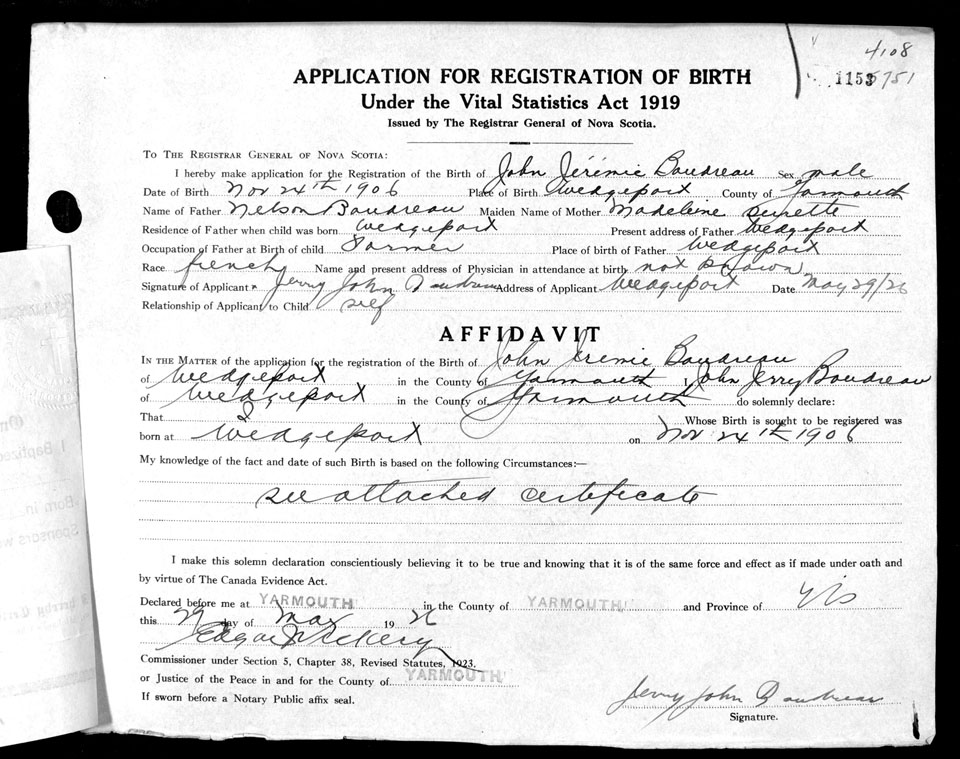 4108
1153 5751
APPLICATION FOR REGISTRATION OF BIRTH
Under the Vital Statistics Act 1919
Issued by The Registrar General of Nova Scotia.
TO THE REGISTRAR GENERAL OF NOVA SCOTIA:
I hereby make application for the Registration of the Birth of John Jérémie Boudreau Sex male
Date of Birth Nov 24th 1906 Place of Birth Wedgeport County of Yarmouth
Name of Father Nelson Boudreau Maiden Name of Mother Madeleine
Residence of Father when child was born Wedgeport Present address of Father Wedgeport
Occupation of Father at Birth of child Farmer Place of birth of Father Wedgeport
Race french Name and present address of Physician in attendance at birth not known
Signature of Applicant Jerry John Boudreau Address of Applicant Wedgeport Date May 29/26
Relationship of Applicant to Child self
AFFIDAVIT
IN THE MATTER of the application for the registration of the Birth of John Jeremie Boudreau
of Wedgeport in the County of Yarmouth I John Jerry Boudreau
of Wedgeport in the County of Yarmouth do solemnly declare:
That I Whose Birth is sought to be registered was
born at Wedgeport on Nov 24th 1906
My knowledge of the fact and date of such Birth is based on the following Circumstances:—
see attached certificate
I make this solemn declaration conscientiously believing it to be true and knowing that it is of the same force and effect as if made under oath and
by virtue of The Canada Evidence Act.
Declared before me at YARMOUTH in the County of YARMOUTH and Province of NS
this 29 day of May 19 26
Commissioner under Section 5, Chapter 38, Revised Statutes, 1923.
or Justice of the Peace in and for the County of YARMOUTH
If sworn before a Notary Public affix seal.
Jerry John Boudreau
Signature.